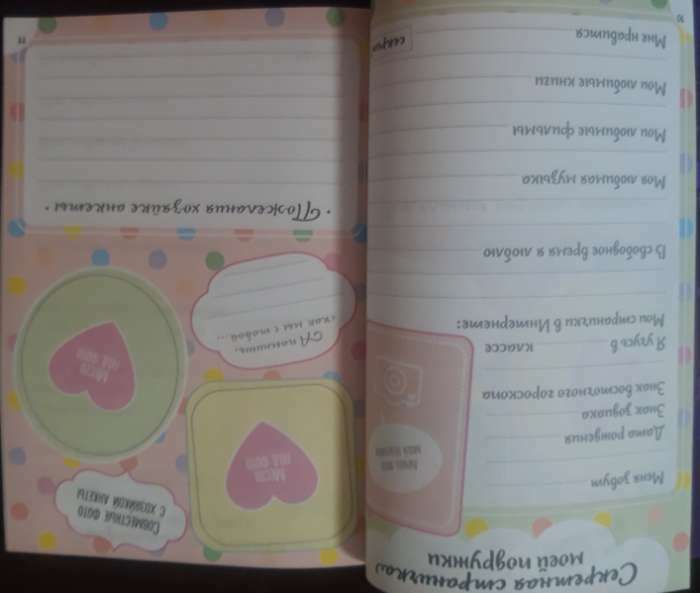 Секретная страничка
моей подружки
Меня зовут
Дата рождения
Знак зодиака
Знак восточного гороскопа
Я учусь в классе
Мои странички в Интернете:
В свободное время я люблю
Моя любимая музыка
Мои любимые фильмы
Мои любимые книги
Мне нравится
секрет
10
Совместные фото
с хозяйкой анкеты
Место
под фото
Место
под фото
А помнишь,
как мы с тобой...
• Пожелания хозяйке анкеты •
11